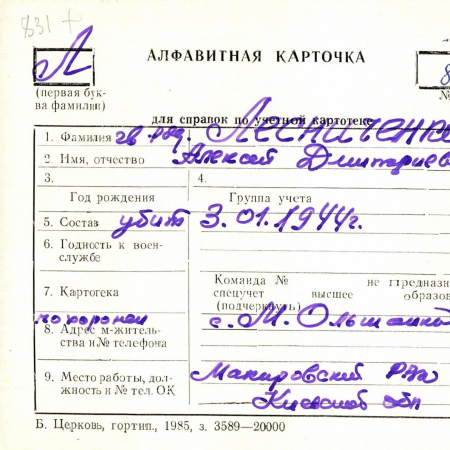 831 +
АЛФАВИТНАЯ КАРТОЧКА
Л
8
(первая бук-
ва фамилии)
№
для справок по учетной картотеке
1. Фамилия гв. ряд. Лесниченко
2. Имя, отчество Алексей Дмитриев
3.
4.
Год рождения
Группа учета
5. Состав убит 3.01.1944г.
6. Годность к воен-
службе
7. Картотека
Команда № не предназн
спецучет высшее образов
(подчеркнуть)
похоронен с. М. Ольшанка
8. Адрес м-житель-
ства и № телефона
9. Место работы, дол-
жность и № тел. ОК
Макаровский р-на
Киевской обл
Б. Церковь, гортип., 1985, з. 3589—20000